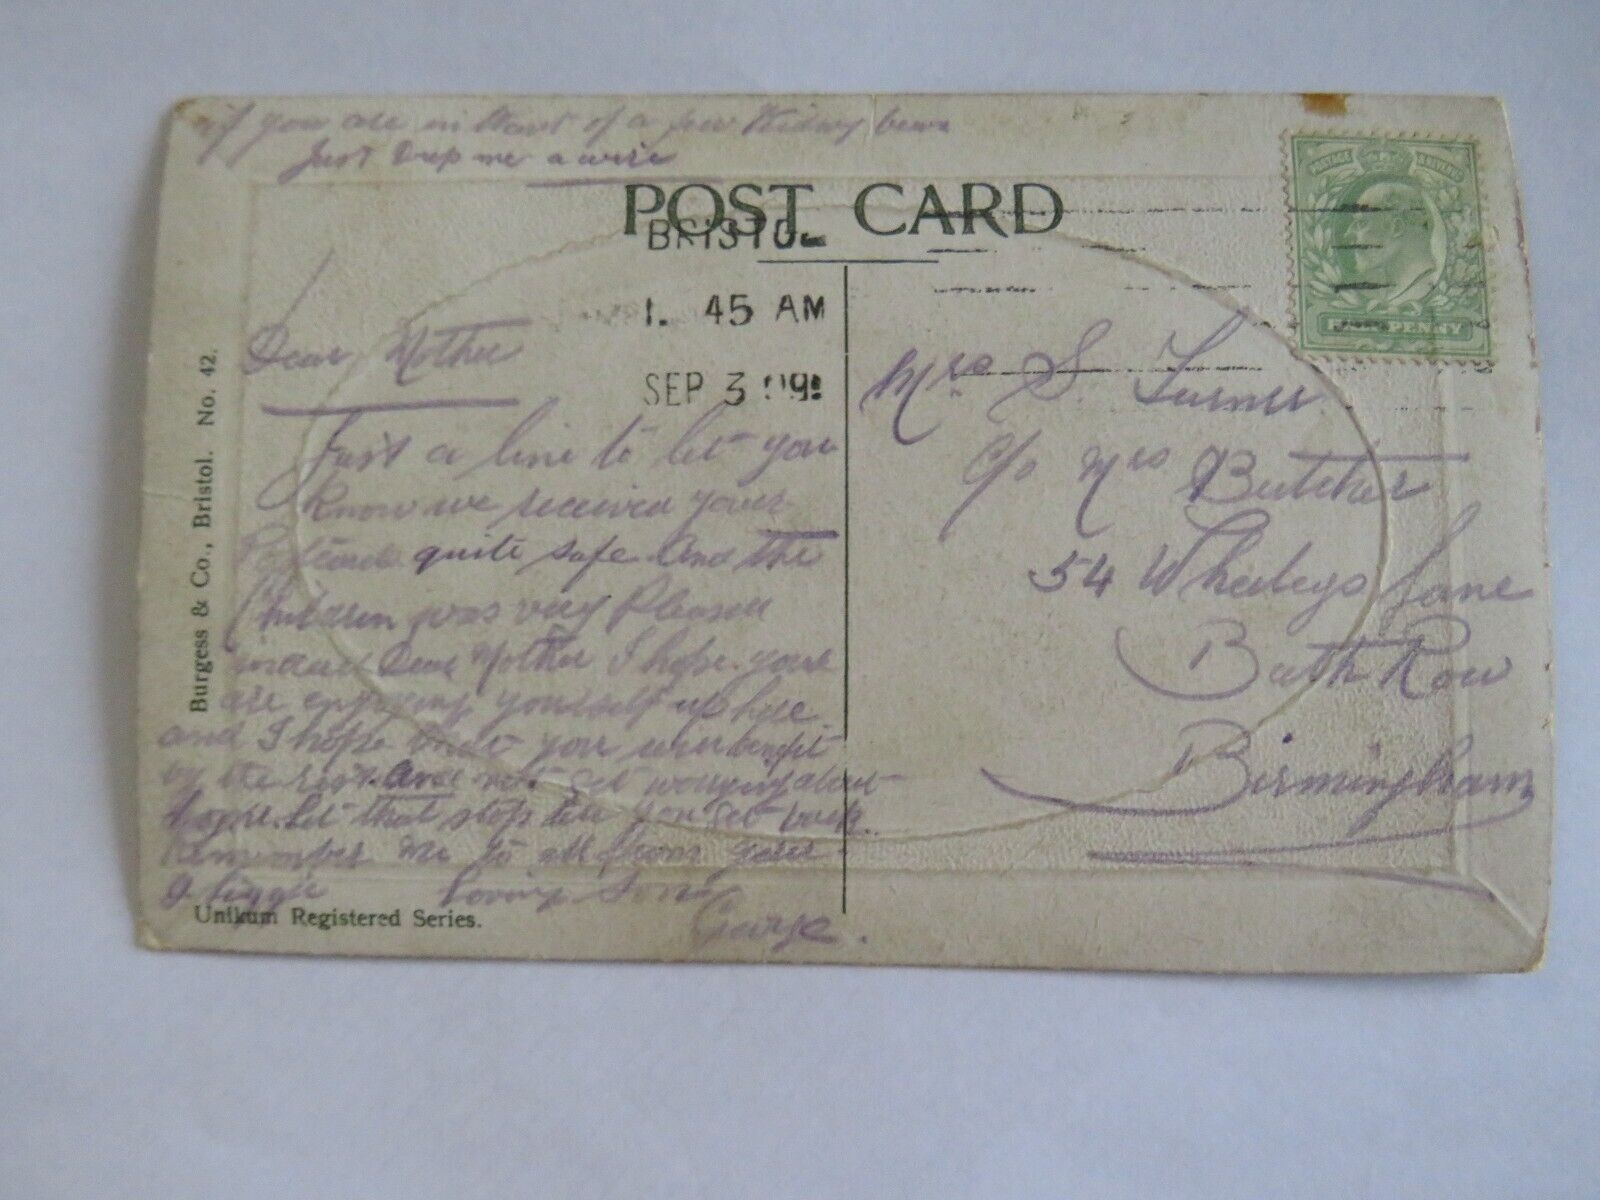 if you are in Want of a few Kidney beans
Just Drop me a wire
POST CARD
BRISTOL
1. 45 AM
SEP 3 09
HALFPENNY
Dear Mother
Just a line to let you
know we received your
Postcards quite safe. And the
Children was very Pleased
Dear Mother I hope you
are enjoying yourself up here
and I hope that you will benefit
by the rest. And not get worrying about
home. Let that stop till you get back.
Remember me to all from your
loving Son
George.
Mrs S. Turner
c/o Mrs Butcher
54 Wheeleys Lane
Bath Row
Birmingham
Burgess & Co., Bristol. No. 42.
Unikum Registered Series.